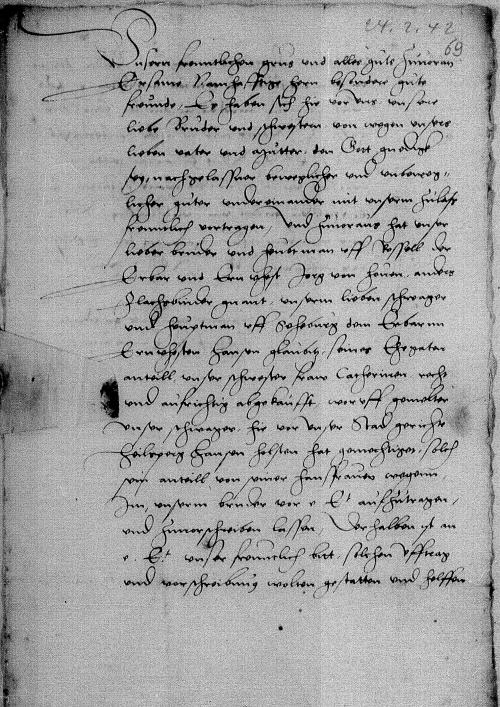 24. 2. 42
69
Unsern freuntlichen grus und alles gute zuvoran
Ersame Namhafftige hern besondere gute
freunde, Es haben sich hie vor uns unsere
liebe Bruder und schwestern von wegen unsers
lieben vater und Mutter, den Gott gnedigk
sey, nachgelassner beweglicher und unbeweg-
licher guter undereinander mit unserm zulass
freuntlich vertragen, Und zuvoraus hat unser
lieber bruder und heubtman uff Ressell der
Erbar und Ernvhest Jorg von hoven, anders
genant, unserm lieben schwager
und heuptman uff dem Erbarnn
Ernvhesten hansen seines
anteill, unser schwester fraw Catherinen, recht
und aufrichtig abgekaufft, woruff gemelter
unser schwager, hie vor unser Stad gerichte
hansen holsten hat gemechtiget, solch
sein anteill von seiner hausfrauen wegenn,
Im, unserm bruder vor e. E.t auffzutragen,
und zuvorschreiben lassen, Derhalben ist an
e. E.t unser freuntlich bitt, solchen ufftrag
und vorschreibung wolten gestatten und helffen